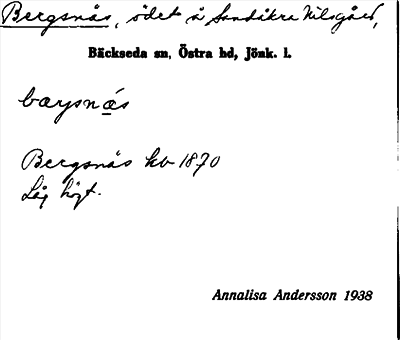 Bergsnäs, ödet å Sandåkra Nilsgård,
Bäckseda sn, Östra hd, Jönk. l.
bærysnǽs
Bergsnäs hv 1870
Låg högt.
Annalisa Andersson 1938